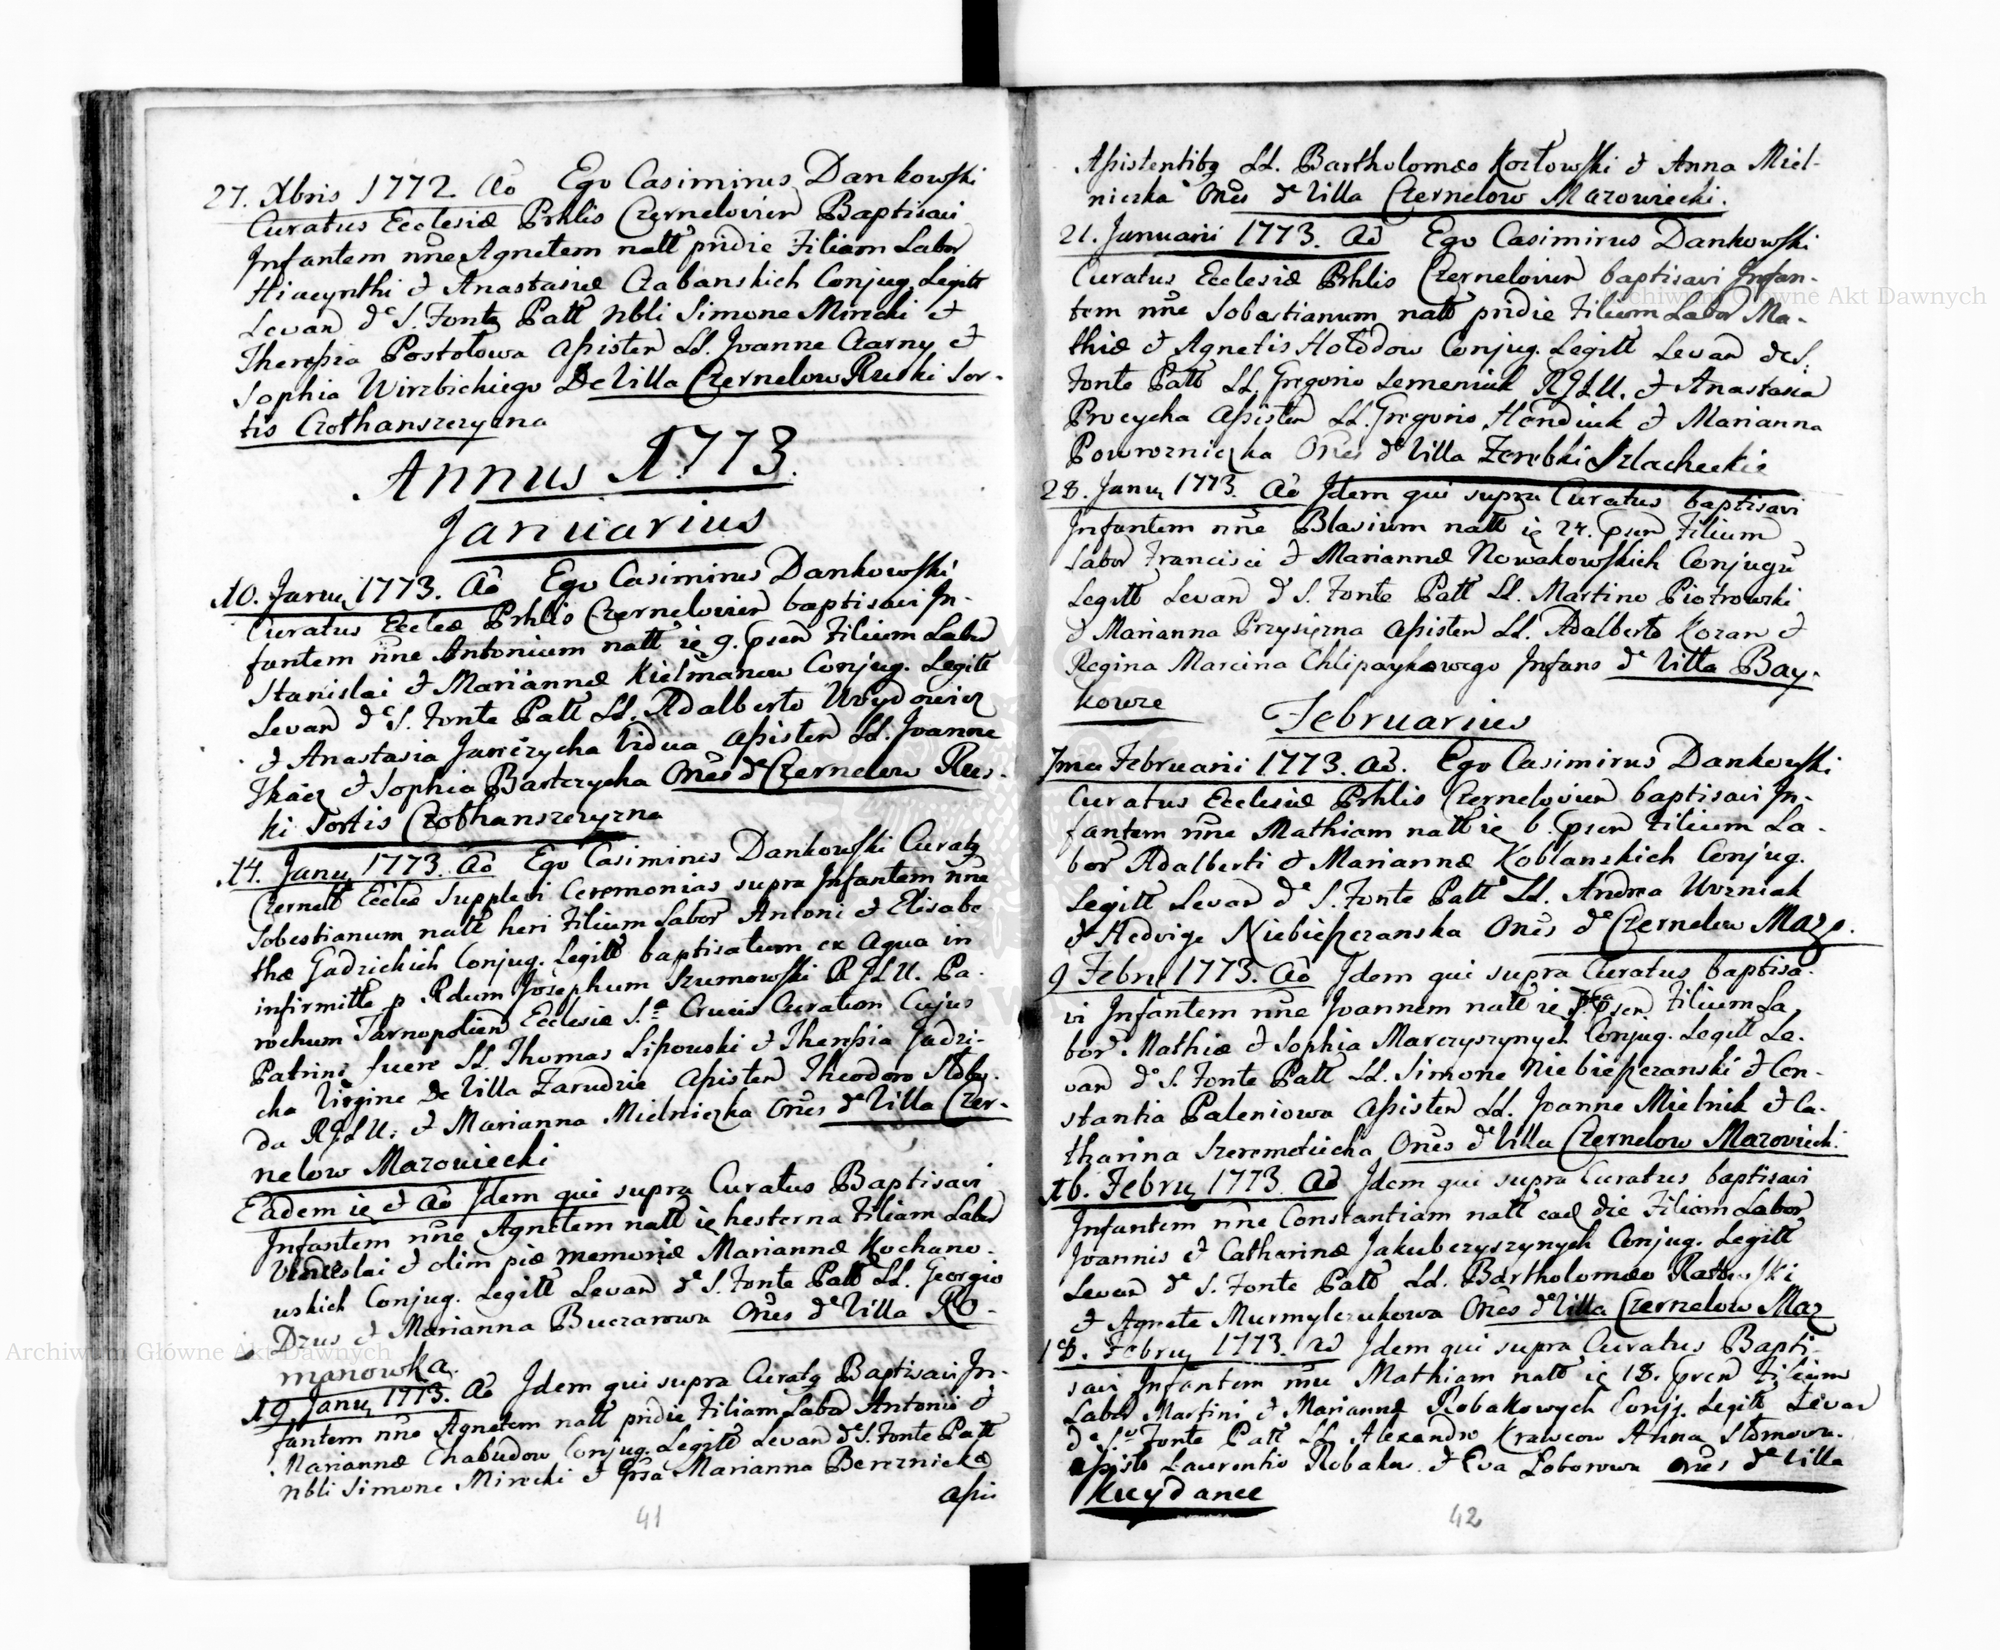 27. Xbris 1772 Ao Ego Casimirus Dankowski
Curatus Ecclesiæ Prhlis Czernelovien Baptisavi
Infantem nne Agnetem natt pridie Filiam Labor
Hiacynthi et Anastasiæ Czabanskich Conjug. Legitt
Levan de S. Fonte Patt Nbli Simone Mirecki et
Theressia Postolowa Assisten LL. Joanne Czarny et
Sophia Wirzbickiego De Villa Czernelow Ruski Sor-
tis Czothanszczyzna
Annus 1773.
Januarius
10. Janu 1773. Ao Ego Casimirus Dankowski
Curatus Eccleæ Prhlis Czernelovien baptisavi In-
fantem nne Antonium natt ie 9. psen Filium Labor
Stanislai et Mariannæ Kielmanow Conjug. Legitt
Levan de S. Fonte Patt LL. Adalberto Woydowicz
et Anastasia Jawrzycha Vidua Assisten LL. Joanne
Tkacz et Sophia Bartczycha Ones de Czernelow Rus-
ki Sortis Czothanszczyzna
14. Janu 1773. Ao Ego Casimirus Dankowski Curatq
Czernell Eccleæ Supplevi Ceremonias supra Infantem nne
Sobestianum natt heri Filium Labor Antoni et Elisabe
thæ Gadzickich Conjug. Legitt baptisatum ex Aqua in
infirmitte p Rdum Josephum Szumowski RGLU. Pa-
rochum Tarnopolien Ecclesiæ S.æ Crucis Curatum Cujus
Patrini fuere LL. Thomas Lipowski et Theressia Gadzi-
cka Virgine De Villa Zarudzie Assisten Theodoro
da RGLU. et Marianna Mielniczka Ones de Villa Czer-
nelow Mazowiecki
Eadem ie et Ao Idem qui supra Curatus Baptisavi
Infantem nne Agnetem natt ie hesterna Filiam Labor
Venceslai et olim piæ memoriæ Mariannæ Kochano-
wskich Conjug. Legitt Levan de S. Fonte Patt LL. Georgio
Dzus et Marianna Buczarowa Ones de Villa Ro-
manowka.
19. Janu 1773. Ao Idem qui supra Curatq Baptisavi In-
fantem nne Agnetem natt pridie Filiam Labor Antonii et
Mariannæ Chabudow Conjug. Legitt Levan de S. Fonte Patt
Nbli Simone Mirecki et Marianna Bereznicka
Assis
41
Assistentibq LL. Bartholomæo Kozłowski et Anna Miel-
niczka Ones de Villa Czernelow Mazowiecki.
21. Januarii 1773. Ao Ego Casimirus Dankowski
Curatus Ecclesiæ Prhlis Czernelovien baptisavi Infan-
tem nne Sobastianum natt pridie Filium Labor Ma-
thiæ et Agnetis Hołodow Conjug. Legitt Levan de S.
Fonte Patt LL. Gregorio Semeniuk RGLU. et Anastasia
Procycha Assisten LL. Gregorio Hendiuk et Marianna
Powrozniczka Ones de Villa Zerebki Szlacheckie
28. Janu 1773. Ao Idem qui supra Curatus baptisavi
Infantem nne Blasium natt ie 24. psen Filium
Labor Francisci et Mariannæ Nowakowskich Conjugu
Legitt Levan de S. Fonte Patt LL. Martino Piotrowski
et Marianna Przysiężna Assisten LL. Adalberto Kozan et
Regina Marcina Chlipaykowego Infans de Villa Bay-
kowce
Februarius
7ma Februarii 1773. Ao. Ego Casimirus Dankowski
Curatus Ecclesiæ Prhlis Czernelovien baptisavi In-
fantem nne Mathiam natt ie 6. psen Filium La-
bor Adalberti et Mariannæ Koblanskich Conjug.
Legitt Levan de S. Fonte Patt LL. Andrea Wozniak
et Hedvige Niebieszczanska Ones de Czernelow Mazo.
9 Febru 1773. Ao Idem qui supra Curatus baptisa-
vi Infantem nne Joannem natt ie psen Filium La
bor Mathiæ et Sophia Marczyszynych Conjug. Legitt Le-
van de S. Fonte Patt LL. Simone Niebieszczanski et Con-
stantia Paleniowa Assisten LL. Joanne Mielnik et Ca-
tharina Szeremetiecha Ones de Villa Czernelow Mazowiecki.
16. Febru 1773. Ao Idem qui supra Curatus baptisavi
Infantem nne Constantiam natt ead die Filiam Labor
Joannis et Catharinæ Jakubczyszynych Conjug. Legitt
Levan de S. Fonte Patt LL. Bartholomæo
et Agnete Murmylczukowa Ones de Villa Czernelow Maz
18. Febru 1773. Ao Idem qui supra Curatus Bapti-
savi Infantem nne Mathiam natt ie 18. psen Filium
Labor Martini et Mariannæ Robakowych Conjj. Legitt Levan
de S.o Fonte Patt LL. Alexandro Krawcow Anna
Assiste Laurentio Robakow et Eva Łoborowa ones de Villa
Kuydance
42
Archiwum Główne Akt Dawnych
Archiwum Główne Akt Dawnych